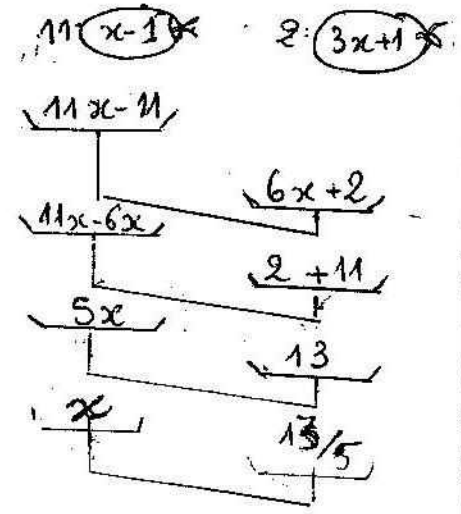 11: x-1 2: 3x+1
11x-11
6x+2
11x-6x
2+11
5x
13
x
13/5